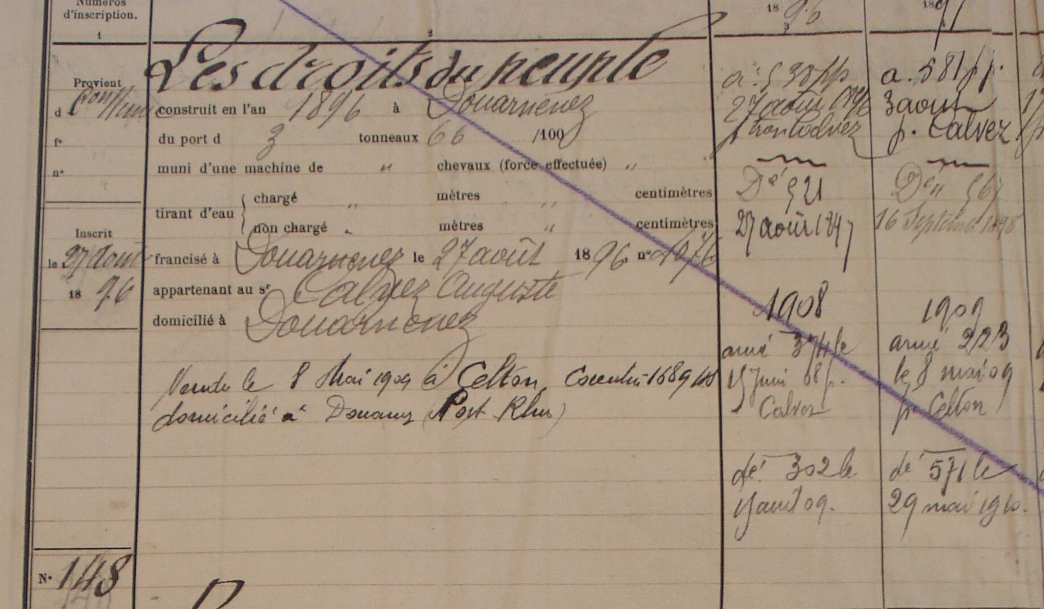 Numéros
d'inscription.
1
Provient
d
f°
n°
Inscrit
le 27 Août
18 96
N° 148
2
Les droits du peuple
construit en l'an 1896 à Douarnenez
du port d 3 tonneaux 66 /100
muni d'une machine de " chevaux (force effectuée) "
tirant d'eau { chargé " mètres " centimètres
non chargé " mètres " centimètres
francisé à Douarnenez le 27 août 1896 n° 1076
appartenant au sr Calvez Auguste
domicilié à Douarnenez
Vendu le 8 Mai 1909 à Celton, Corentin 1689
domicilié à Douarnz (Port Rhu)
18 96
3
a. 538 pp
27 août 1896
p. Calvez
Dé 521
27 août 1897
1908
armé 374 le
15 Juin 08 p.
Calvez
dé 302 le
avril 09.
18 97
a. 581 p.
3 août
p. Calvez
Dé
16 Septembre 1898
1909
armé 223
le 8 mai 09
p. Celton
dé 571 le
29 mai 1910.